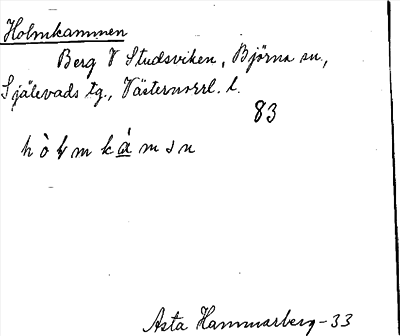 Holmkammen
Berg V Studsviken, Björna sn,
Själevads tg., Västernorrl. l.
83
Asta Hammarberg-33